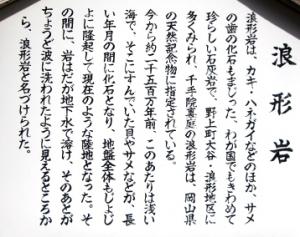 浪形岩
浪形岩は、カキ、ハネガイなどのほか、サメ
の歯の化石もまじった、わが国でもきわめて
珍らしい石灰岩で、野上町大谷・浪形地区に
多くみられ、千手院裏庭の浪形岩は、岡山県
の天然記念物に指定されている。
今から約二千五百万年前、このあたりは浅い
海で、そこにすんでいた貝やサメなどが、長
い年月の間に化石となり、地盤全体もしじょ
よに隆起して現在のような陸地となった。そ
の間に、岩はだが地下水で溶け、そのあとが
ちょうど波に洗われたように見えるところか
ら、浪形岩と名づけられた。